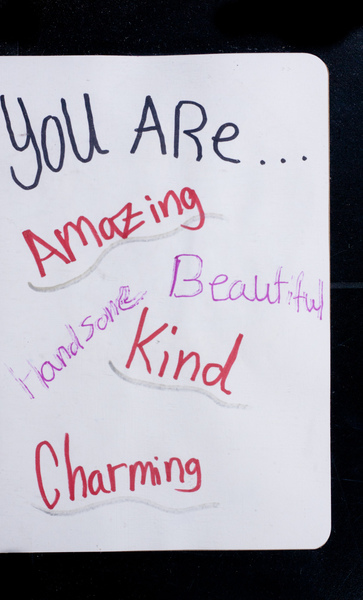 YOU ARe...
Amazing
Beautiful
Handsome
Kind
Charming